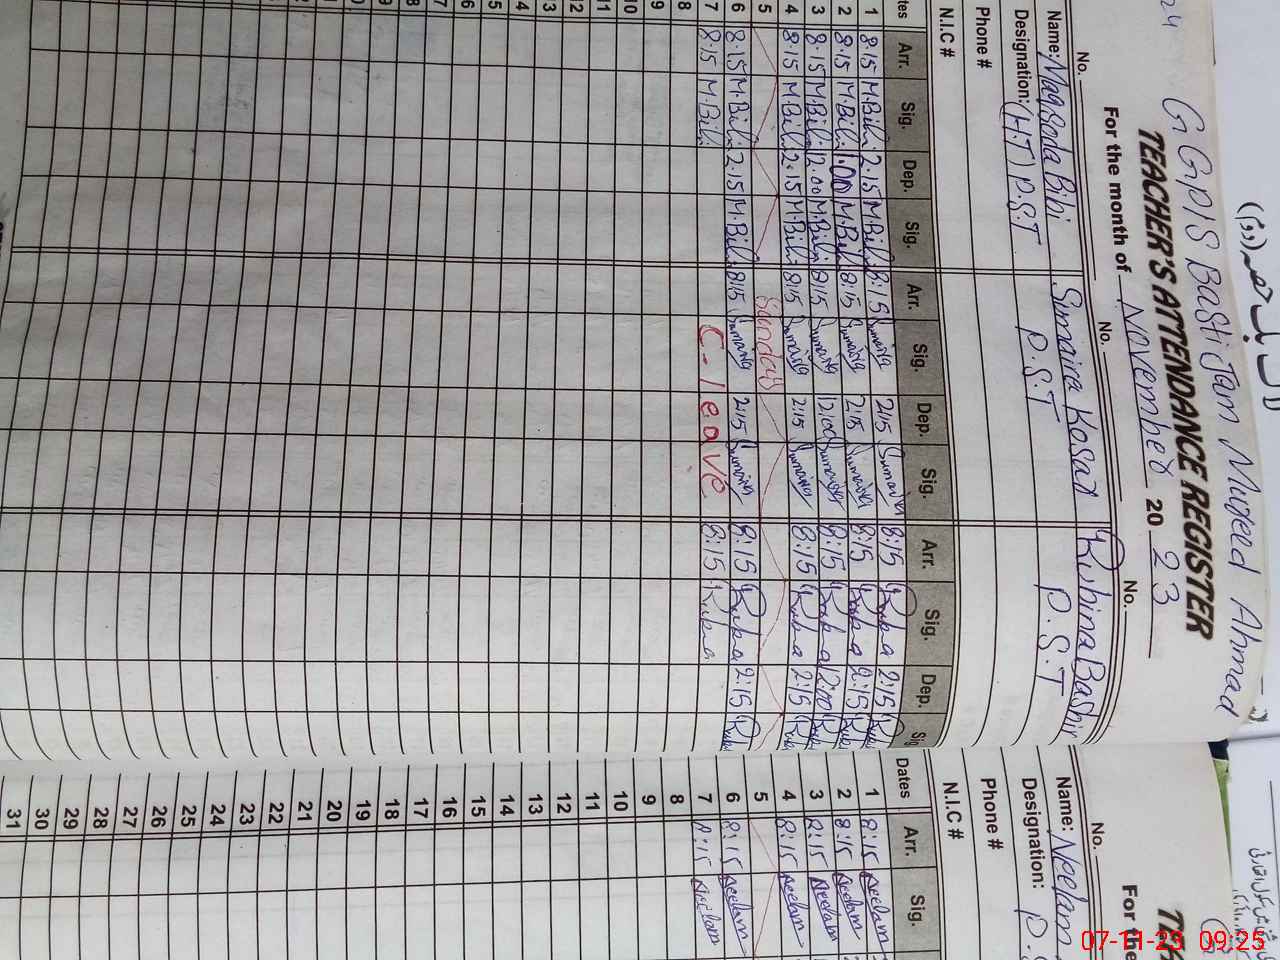 G GPIS Basti Jam Mureed Ahmad
TEACHER'S ATTENDANCE REGISTER
For the month of November 20 23
No. No. No.
Name: Maqsoda Bibi Sumaira Kosar Rubina Bashir
Designation: (H.T) P.S.T P.S.T P.S.T
Phone #
N.I.C #
Arr. Sig. Dep. Sig. Arr. Sig. Dep. Sig. Arr. Sig. Dep. Sig
1 8:15 M.Bibi 2.15 M.Bibi 8:15 Sumaira 2:15 Sumaira 8:15 Rubina 2:15
2 8:15 M.Bibi 1.00 M.Bibi 8:15 Sumaira 2:15 Sumaira 8:15 Rubina 2:15
3 8:15 M.Bibi 12.00 M.Bibi 8:15 Sumaira 12:00 Sumaira 8:15 Rubina 12:00
4 8:15 M.Bibi 2.15 M.Bibi 8:15 Sumaira 2:15 Sumaira 8:15 Rubina 2:15
5 Sunday
6 8:15 M.Bibi 2.15 M.Bibi 8:15 Sumaira 2:15 Sumaira 8:15 Rubina 2:15
7 8:15 M.Bibi C-leave 8:15 Rubina
8
9
10
11
12
13
14
15
16
17
No.
Name: Neelam
Designation: P.S
Phone #
N.I.C #
Dates Arr. Sig.
1 8:15 Neelam
2 8:15 Neelam
3 8:15 Neelam
4 8:15 Neelam
5
6 8:15 Neelam
7 8:15 Neelam
8
9
10
11
12
13
14
15
16
17
18
19
20
21
22
23
24
25
26
27
28
29
30
31
07-11-23 09:25